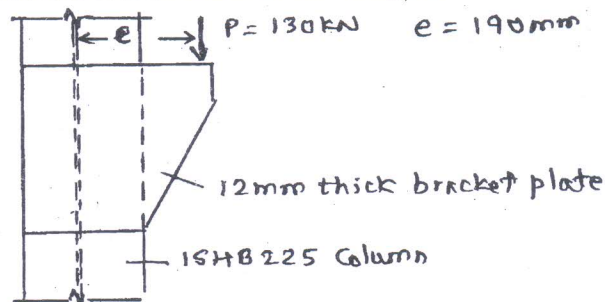 e P = 130KN e = 190mm
12mm thick bracket plate
ISHB 225 Column